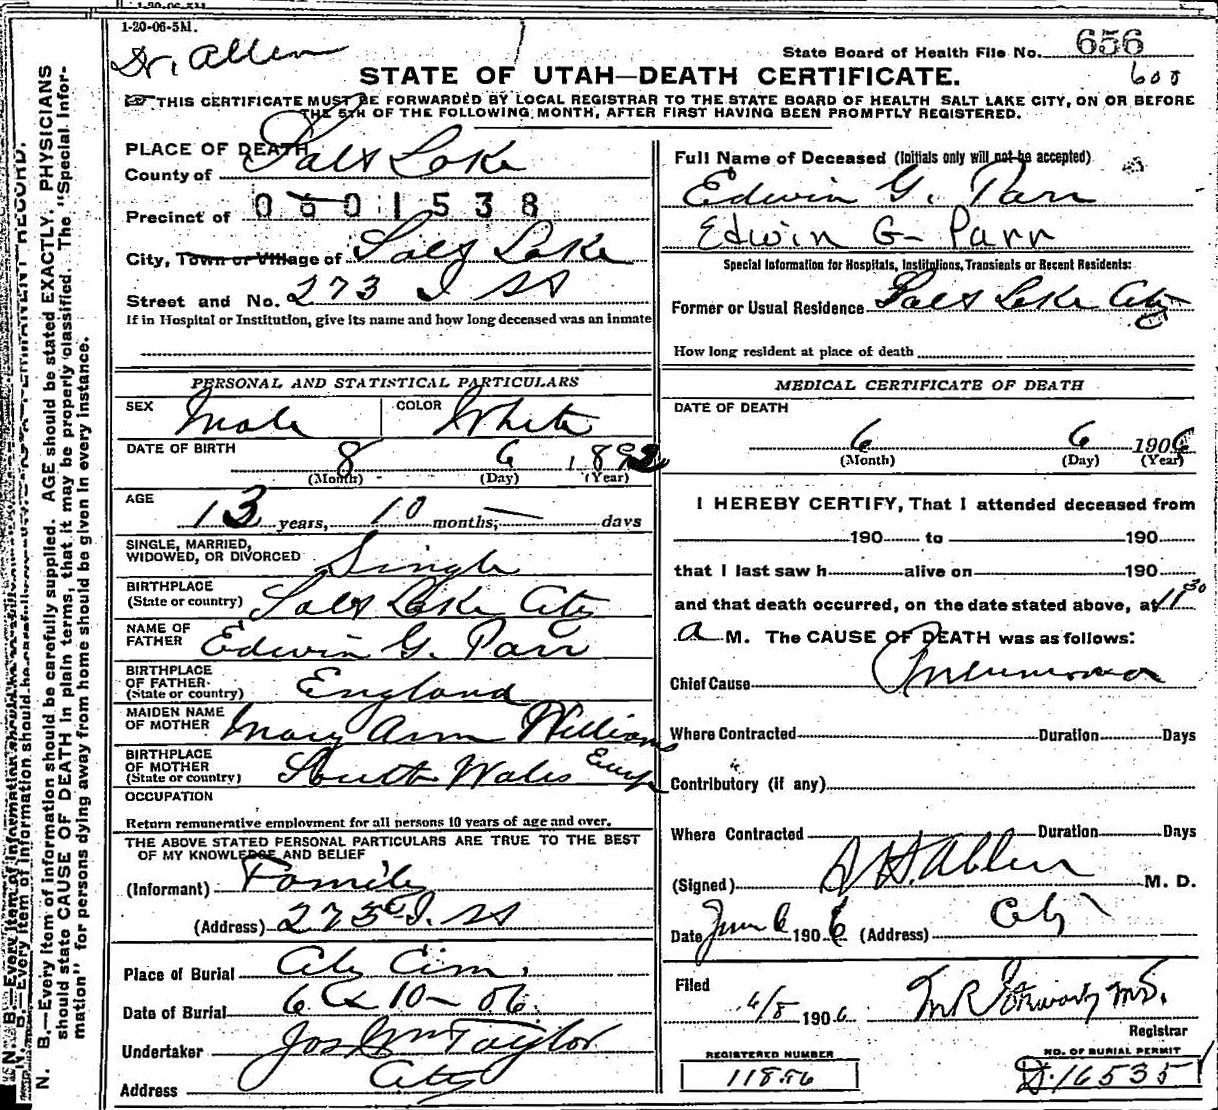 1-20-06-5M.
Dr. Allen
State Board of Health File No. 656
600
STATE OF UTAH—DEATH CERTIFICATE.
THIS CERTIFICATE MUST BE FORWARDED BY LOCAL REGISTRAR TO THE STATE BOARD OF HEALTH SALT LAKE CITY, ON OR BEFORE
THE 5TH OF THE FOLLOWING MONTH, AFTER FIRST HAVING BEEN PROMPTLY REGISTERED.
PLACE OF DEATH
County of Salt Lake
Precinct of 0601538
City, Town or Village of Salt Lake
Street and No. 273 I St
If in Hospital or Institution, give its name and how long deceased was an inmate
Full Name of Deceased (Initials only will not be accepted)
Edwin G. Parr
Edwin G Parr
Special Information for Hospitals, Institutions, Transients or Recent Residents:
Former or Usual Residence Salt Lake City
How long resident at place of death
PERSONAL AND STATISTICAL PARTICULARS
SEX Male COLOR White
DATE OF BIRTH 8 6 1892
(Month) (Day) (Year)
AGE 13 years, 10 months, — days
SINGLE, MARRIED,
WIDOWED, OR DIVORCED Single
BIRTHPLACE
(State or country) Salt Lake City
NAME OF
FATHER Edwin G. Parr
BIRTHPLACE
OF FATHER
(State or country) England
MAIDEN NAME
OF MOTHER Mary Ann Williams
BIRTHPLACE
OF MOTHER
(State or country) South Wales
OCCUPATION
Return remunerative employment for all persons 10 years of age and over.
THE ABOVE STATED PERSONAL PARTICULARS ARE TRUE TO THE BEST
OF MY KNOWLEDGE AND BELIEF
(Informant) Family
(Address) 273 I. St
Place of Burial City Cem.
Date of Burial 6 10-06.
Undertaker Jos Wm Taylor
Address City
MEDICAL CERTIFICATE OF DEATH
DATE OF DEATH
6 6 1906
(Month) (Day) (Year)
I HEREBY CERTIFY, That I attended deceased from
190 to 190
that I last saw h alive on 190
and that death occurred, on the date stated above, at 11 30
a M. The CAUSE OF DEATH was as follows:
Chief Cause Pneumonia
Where Contracted Duration Days
Contributory (if any)
Where Contracted Duration Days
(Signed) S. H. Allen M. D.
Date June 6 1906 (Address) City
Filed
6/8 1906
Registrar
REGISTERED NUMBER
11856
NO. OF BURIAL PERMIT
D.16535
N. B.—Every item of information should be carefully supplied. AGE should be stated EXACTLY. PHYSICIANS
should state CAUSE OF DEATH in plain terms, that it may be properly classified. The "Special Infor-
mation" for persons dying away from home should be given in every instance.